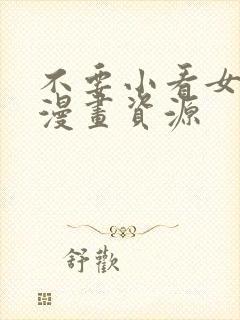 不要小看女
漫畫資源
舒歡